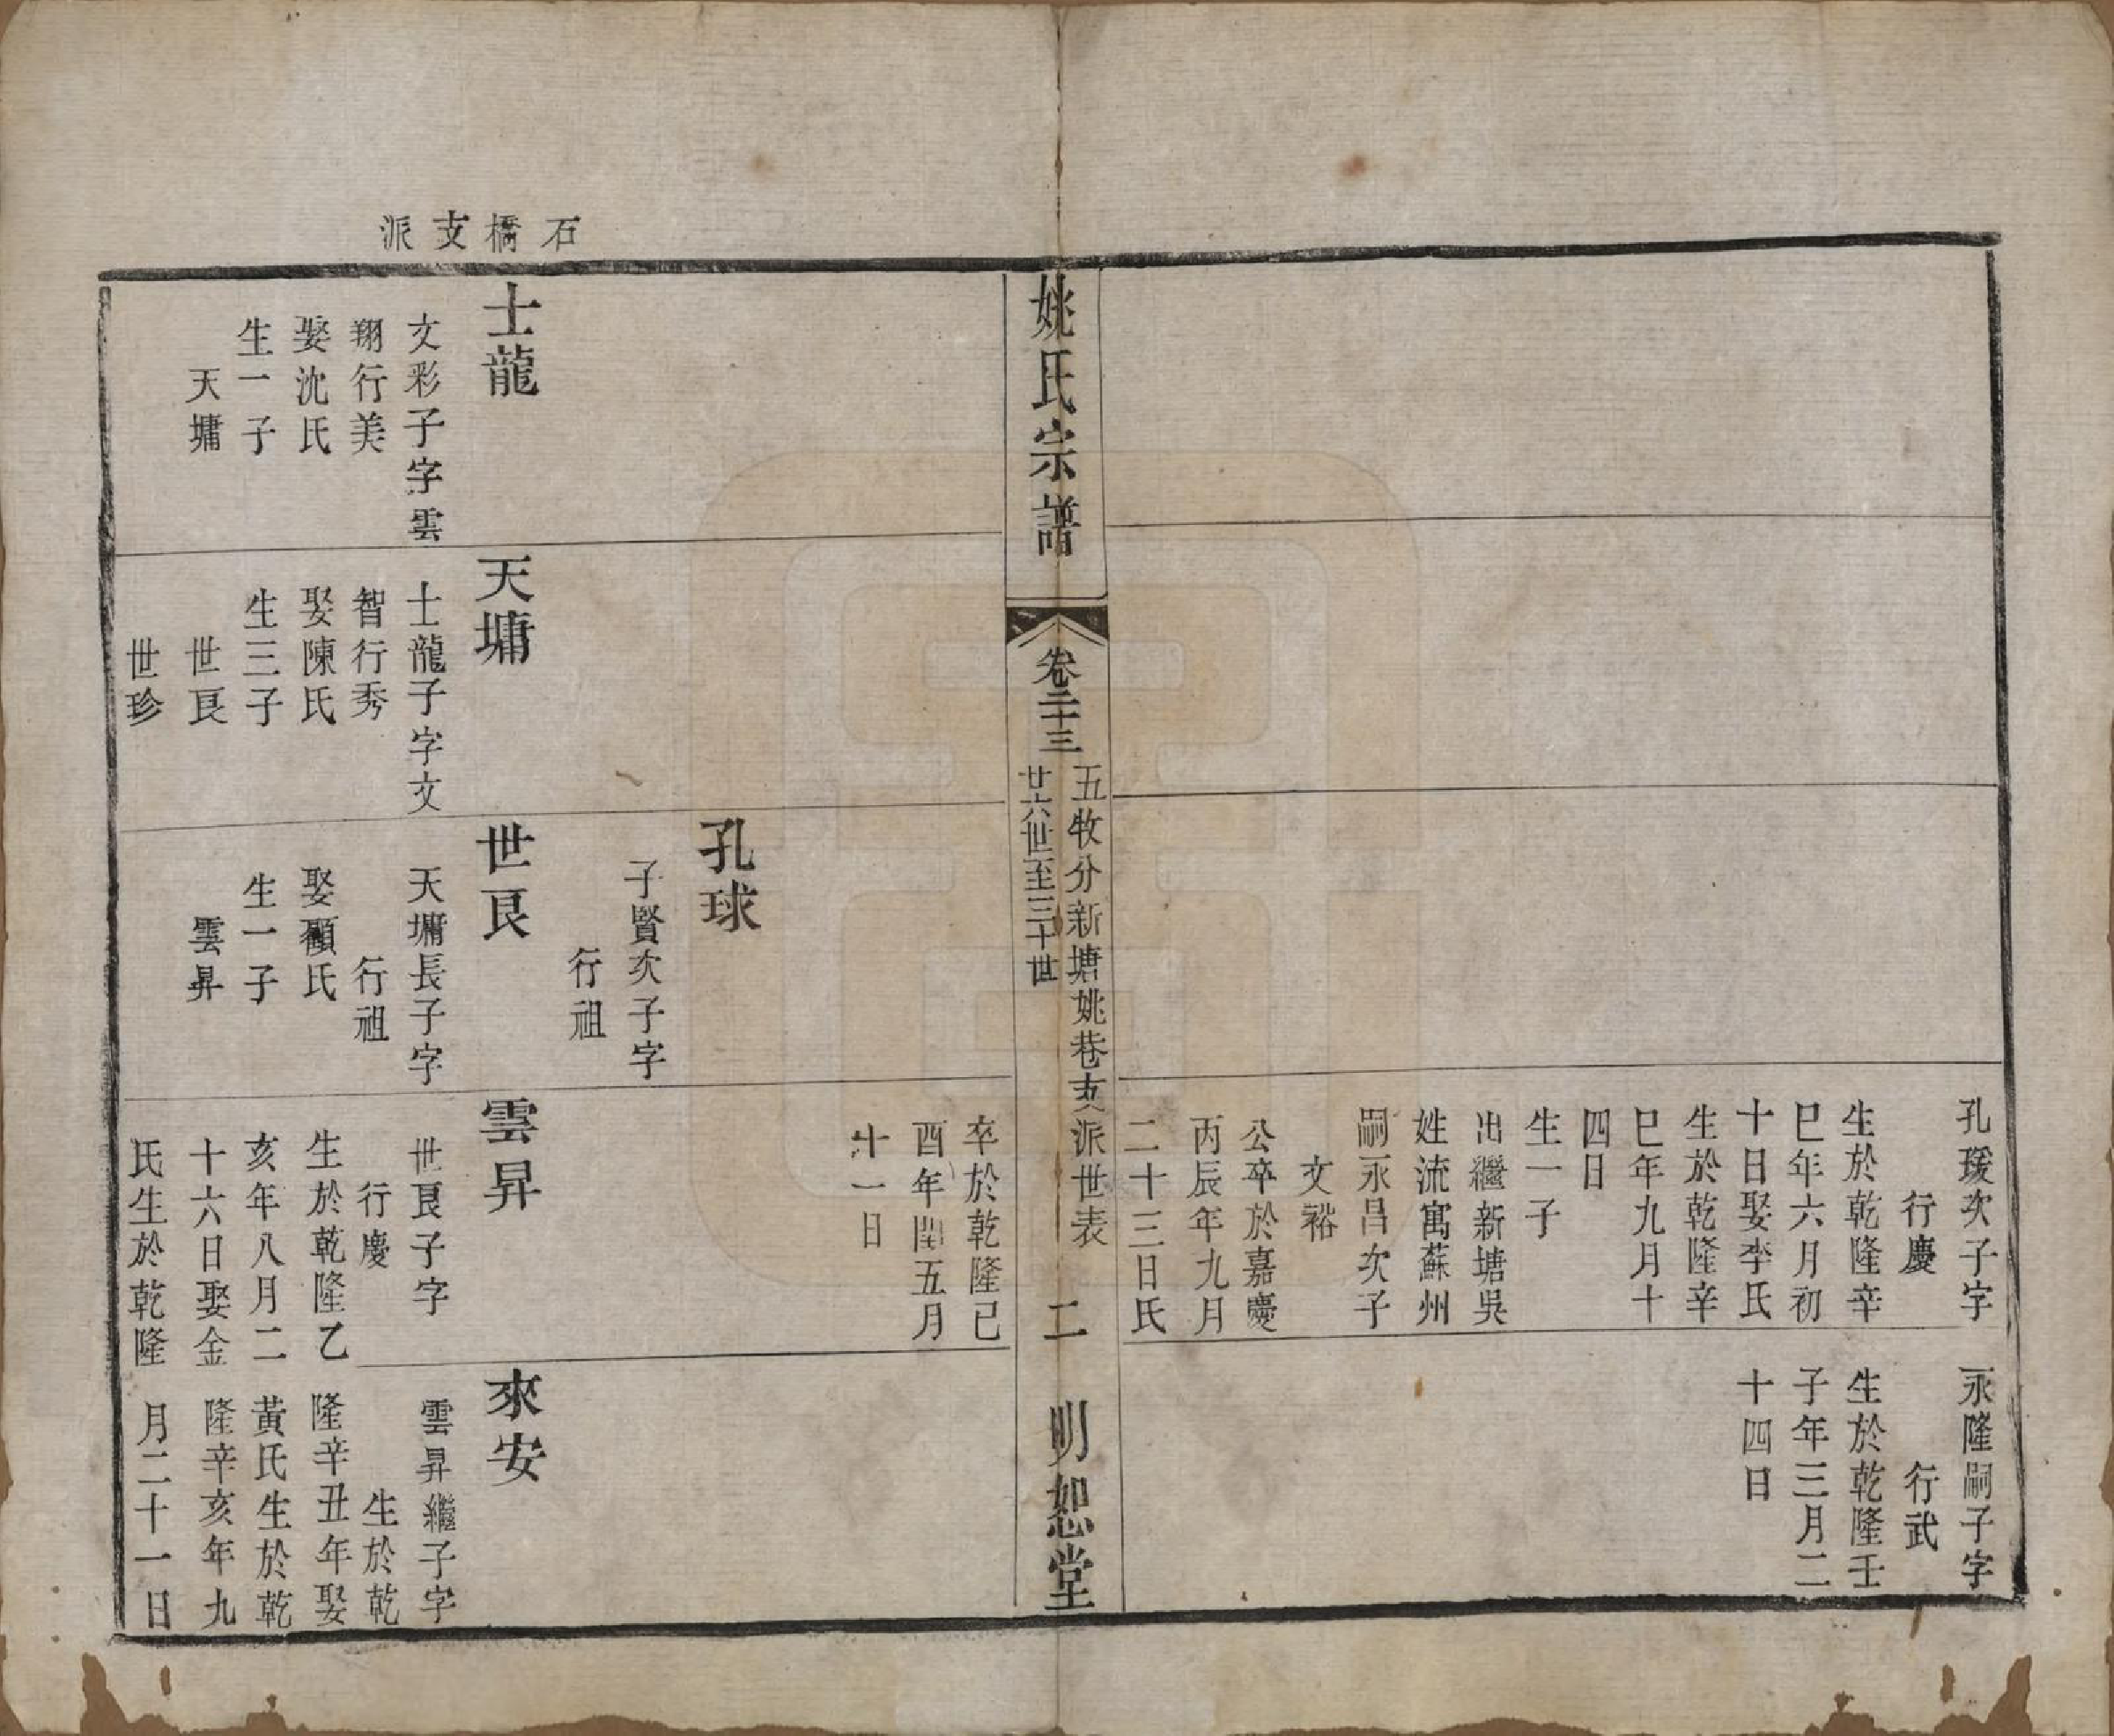 孔瑗次子字
行慶
生於乾隆辛
巳年六月初
十日娶李氏
生於乾隆辛
巳年九月十
四日
生一子
出繼新塘吳
姓流寓蘇州
嗣永昌次子
文裕
公卒於嘉慶
丙辰年九月
二十三日氏
永隆嗣子字
行武
生於乾隆壬
子年三月二
十四日
姚氏宗譜
卷二十三
五牧分新塘姚巷支派世表
廿六世至三十世
二
明恕堂
卒於乾隆己
酉年閏五月
十一日
孔球
子賢次子字
行祖
石橋支派
士龍
文彩子字雲
翔行美
娶沈氏
生一子
天墉
天墉
士龍子字文
智行秀
娶陳氏
生三子
世良
世珍
世良
天墉長子字
行祖
娶顧氏
生一子
雲昇
雲昇
世良子字
行慶
生於乾隆乙
亥年八月二
十六日娶金
氏生於乾隆
來安
雲昇繼子字
生於乾
隆辛丑年娶
黃氏生於乾
隆辛亥年九
月二十一日